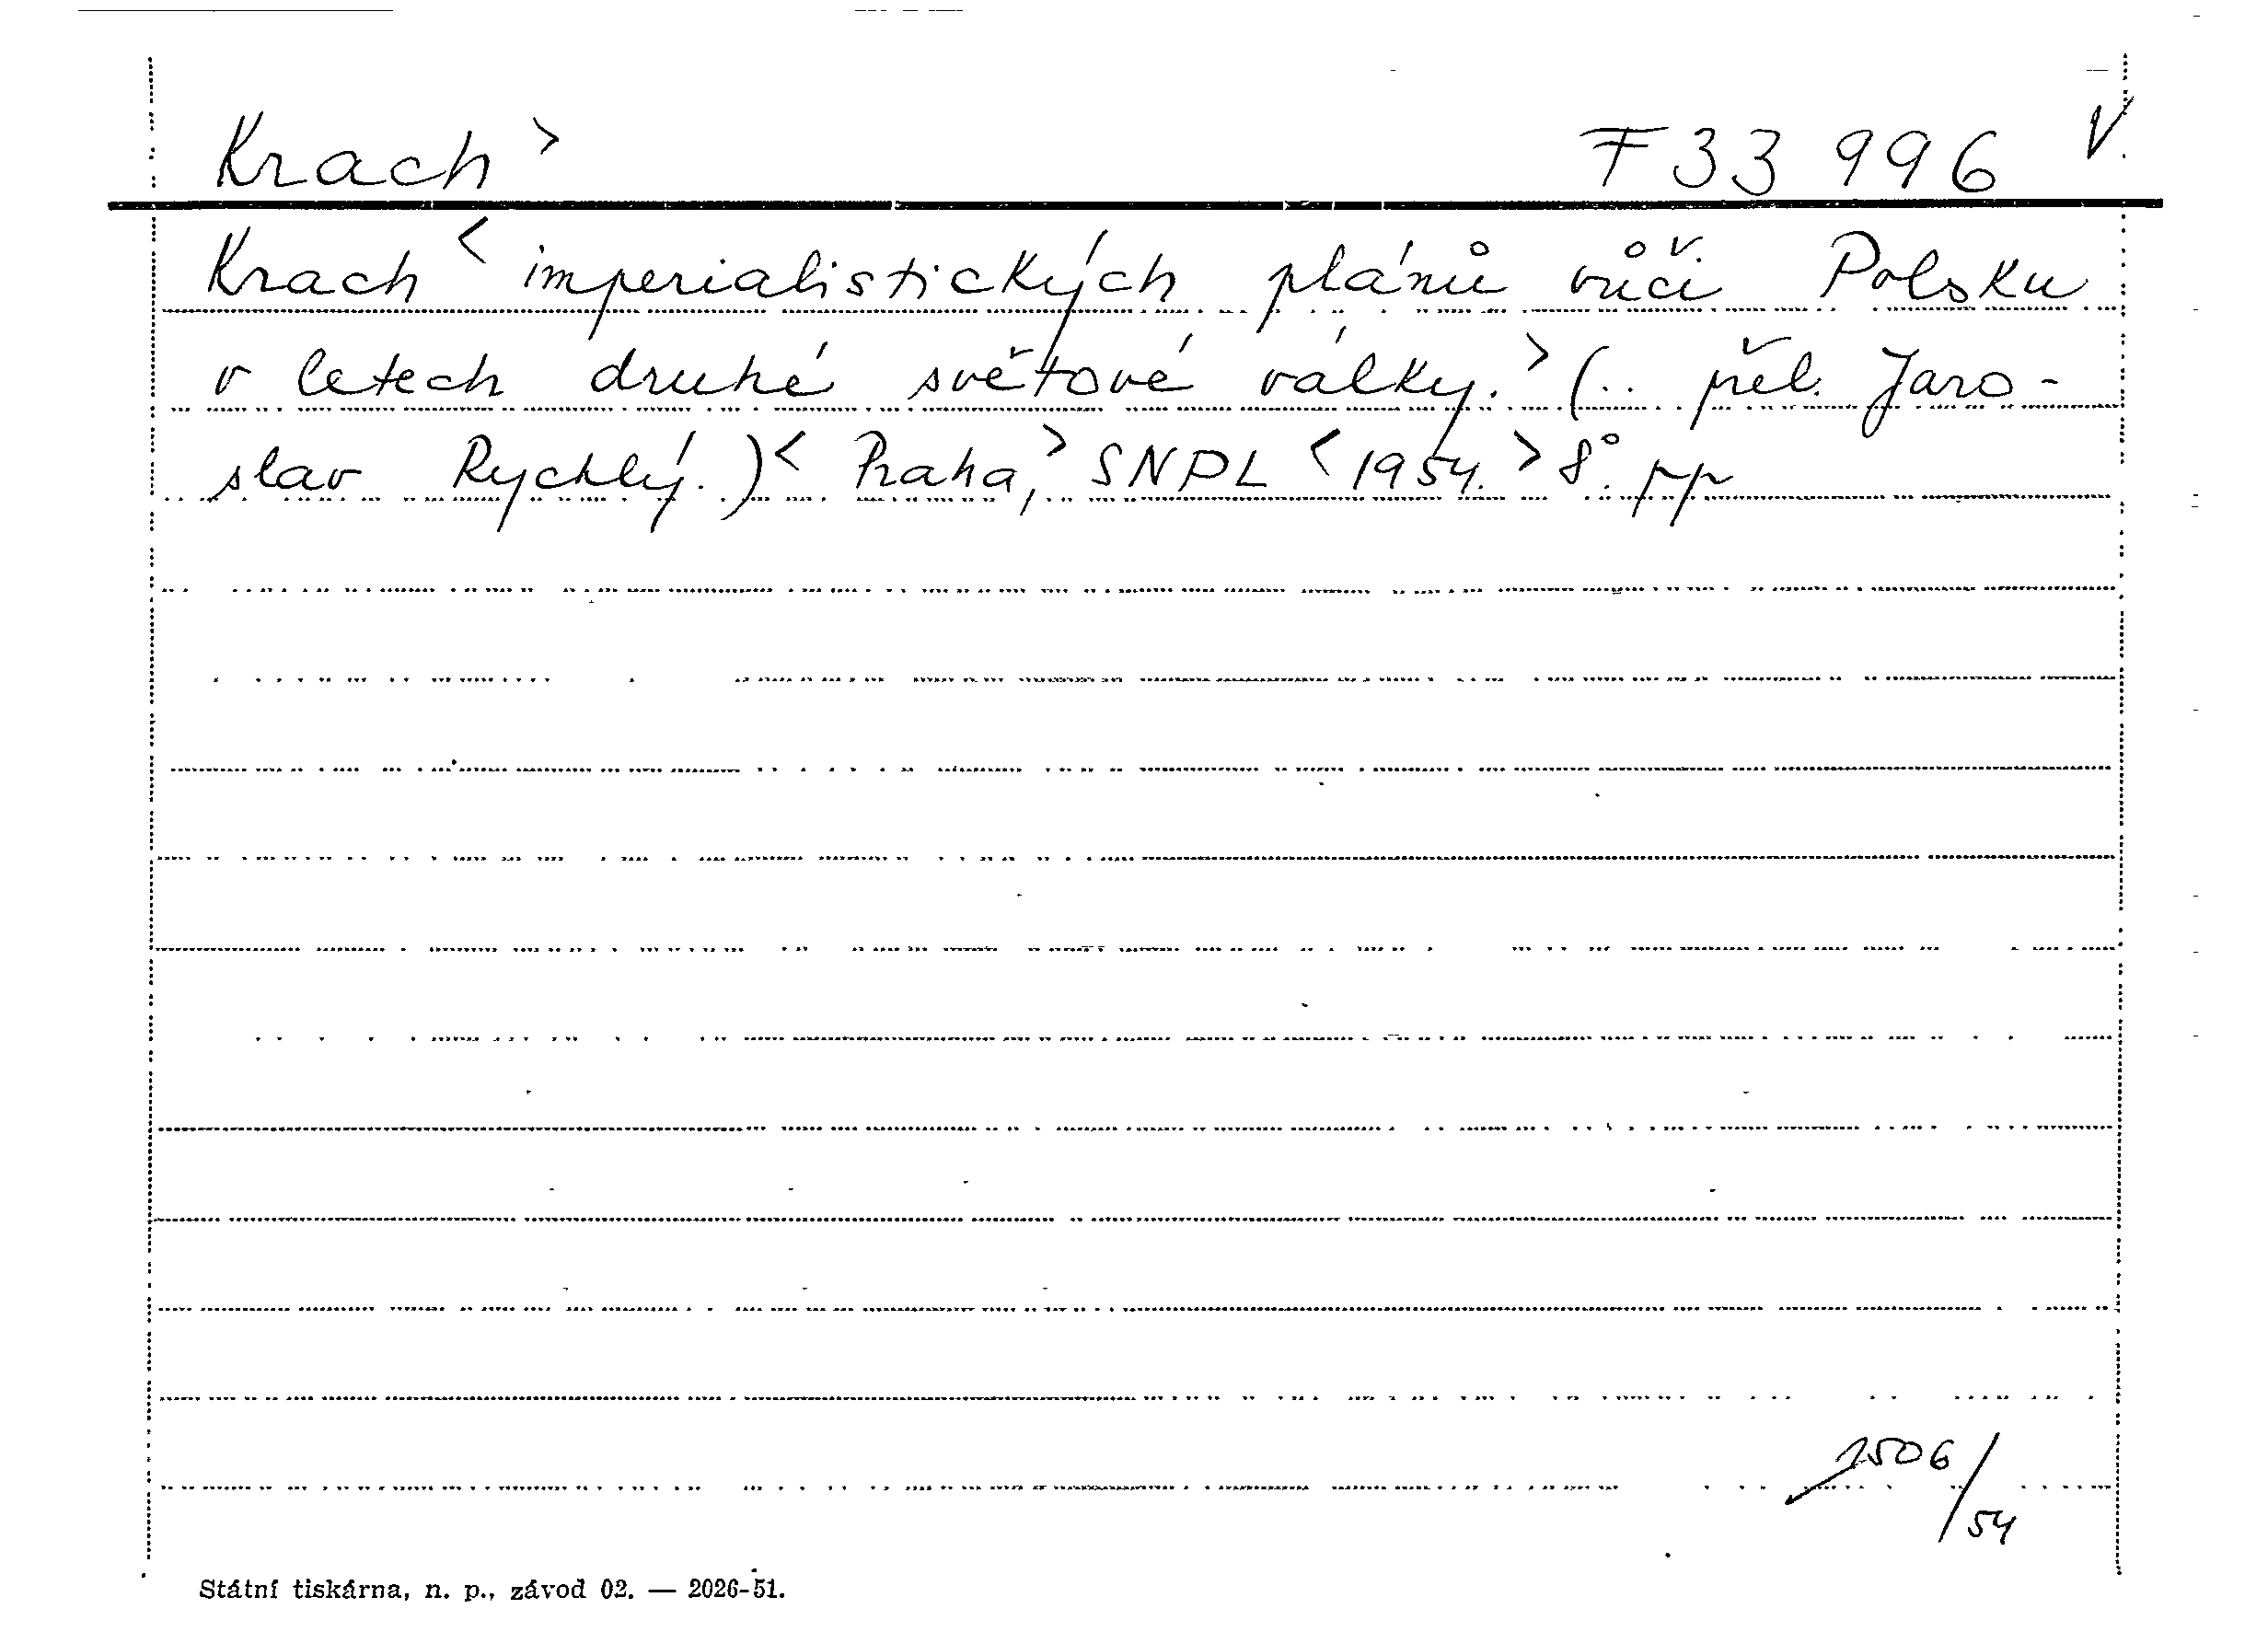 Krach> F 33 996 V.
Krach < imperialistických plánů vůči Polsku
v letech druhé světové války. > (.. přel. Jaro-
slav Rychlý.) < Praha, > SNPL < 1954. > 8°. pp
1506/54
Státní tiskárna, n. p., závod 02. — 2026-51.